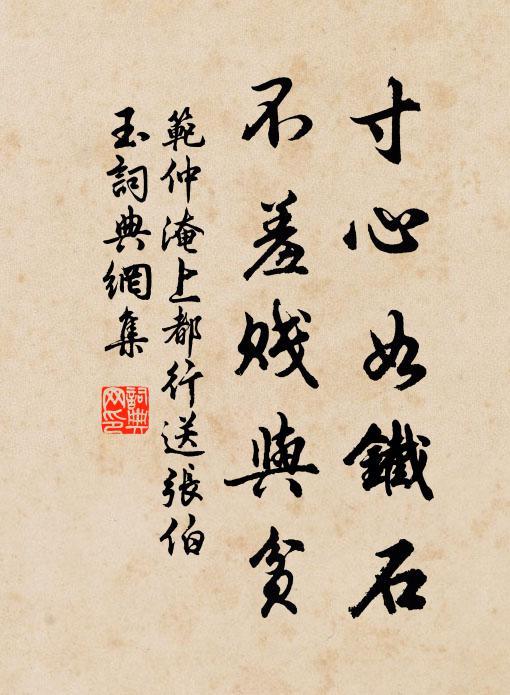 寸心如鐵石
不羞賤與貧
範仲淹上都行送張伯
玉詞典網集
詞典
网印